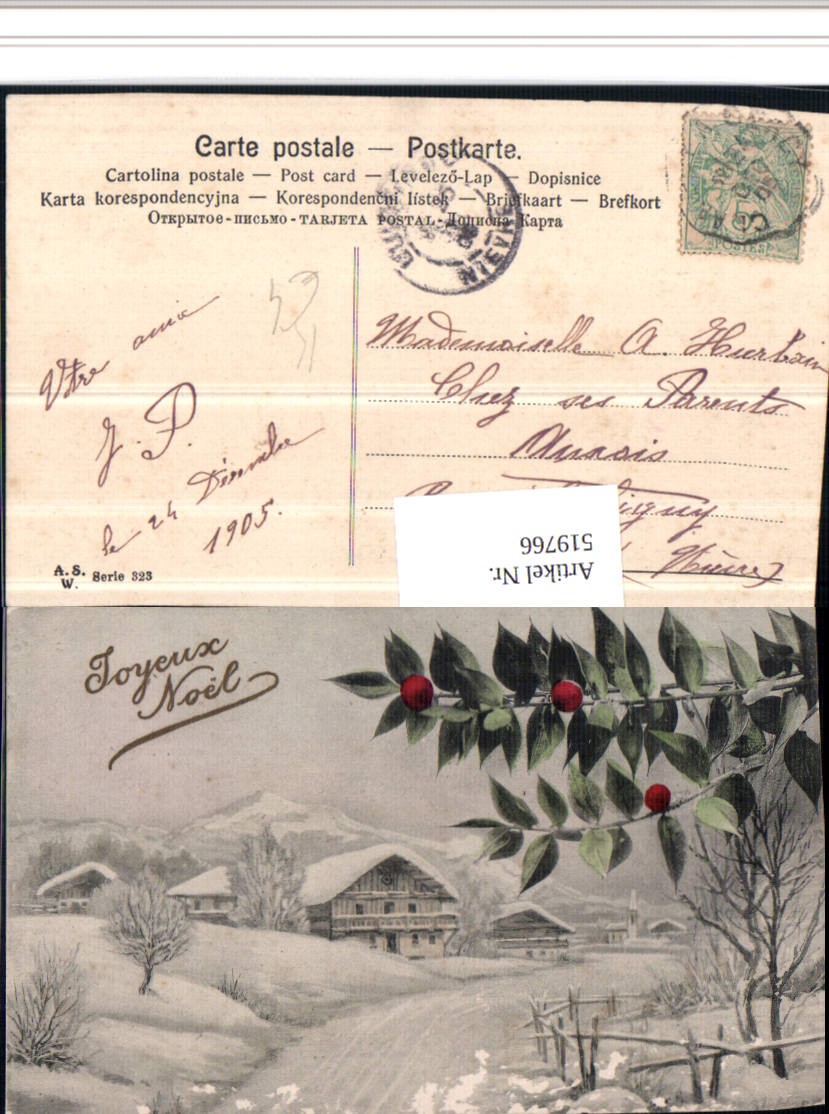 Carte postale — Postkarte.
Cartolina postale — Post card — Levelező-Lap — Dopisnice
Karta korespondencyjna — Korespondenčni lístek — Briefkaart — Brefkort
Открытое-письмо - TARJETA POSTAL - Дописна Карта
POSTES
NIEVRE
Votre amie
J. P.
le 24 Décembre
1905.
Mademoiselle A. Hurbain
Chez ses Parents
Aunais
(Nièvre)
Artikel Nr.
519766
A. S.
W. Serie 323
Joyeux
Noël